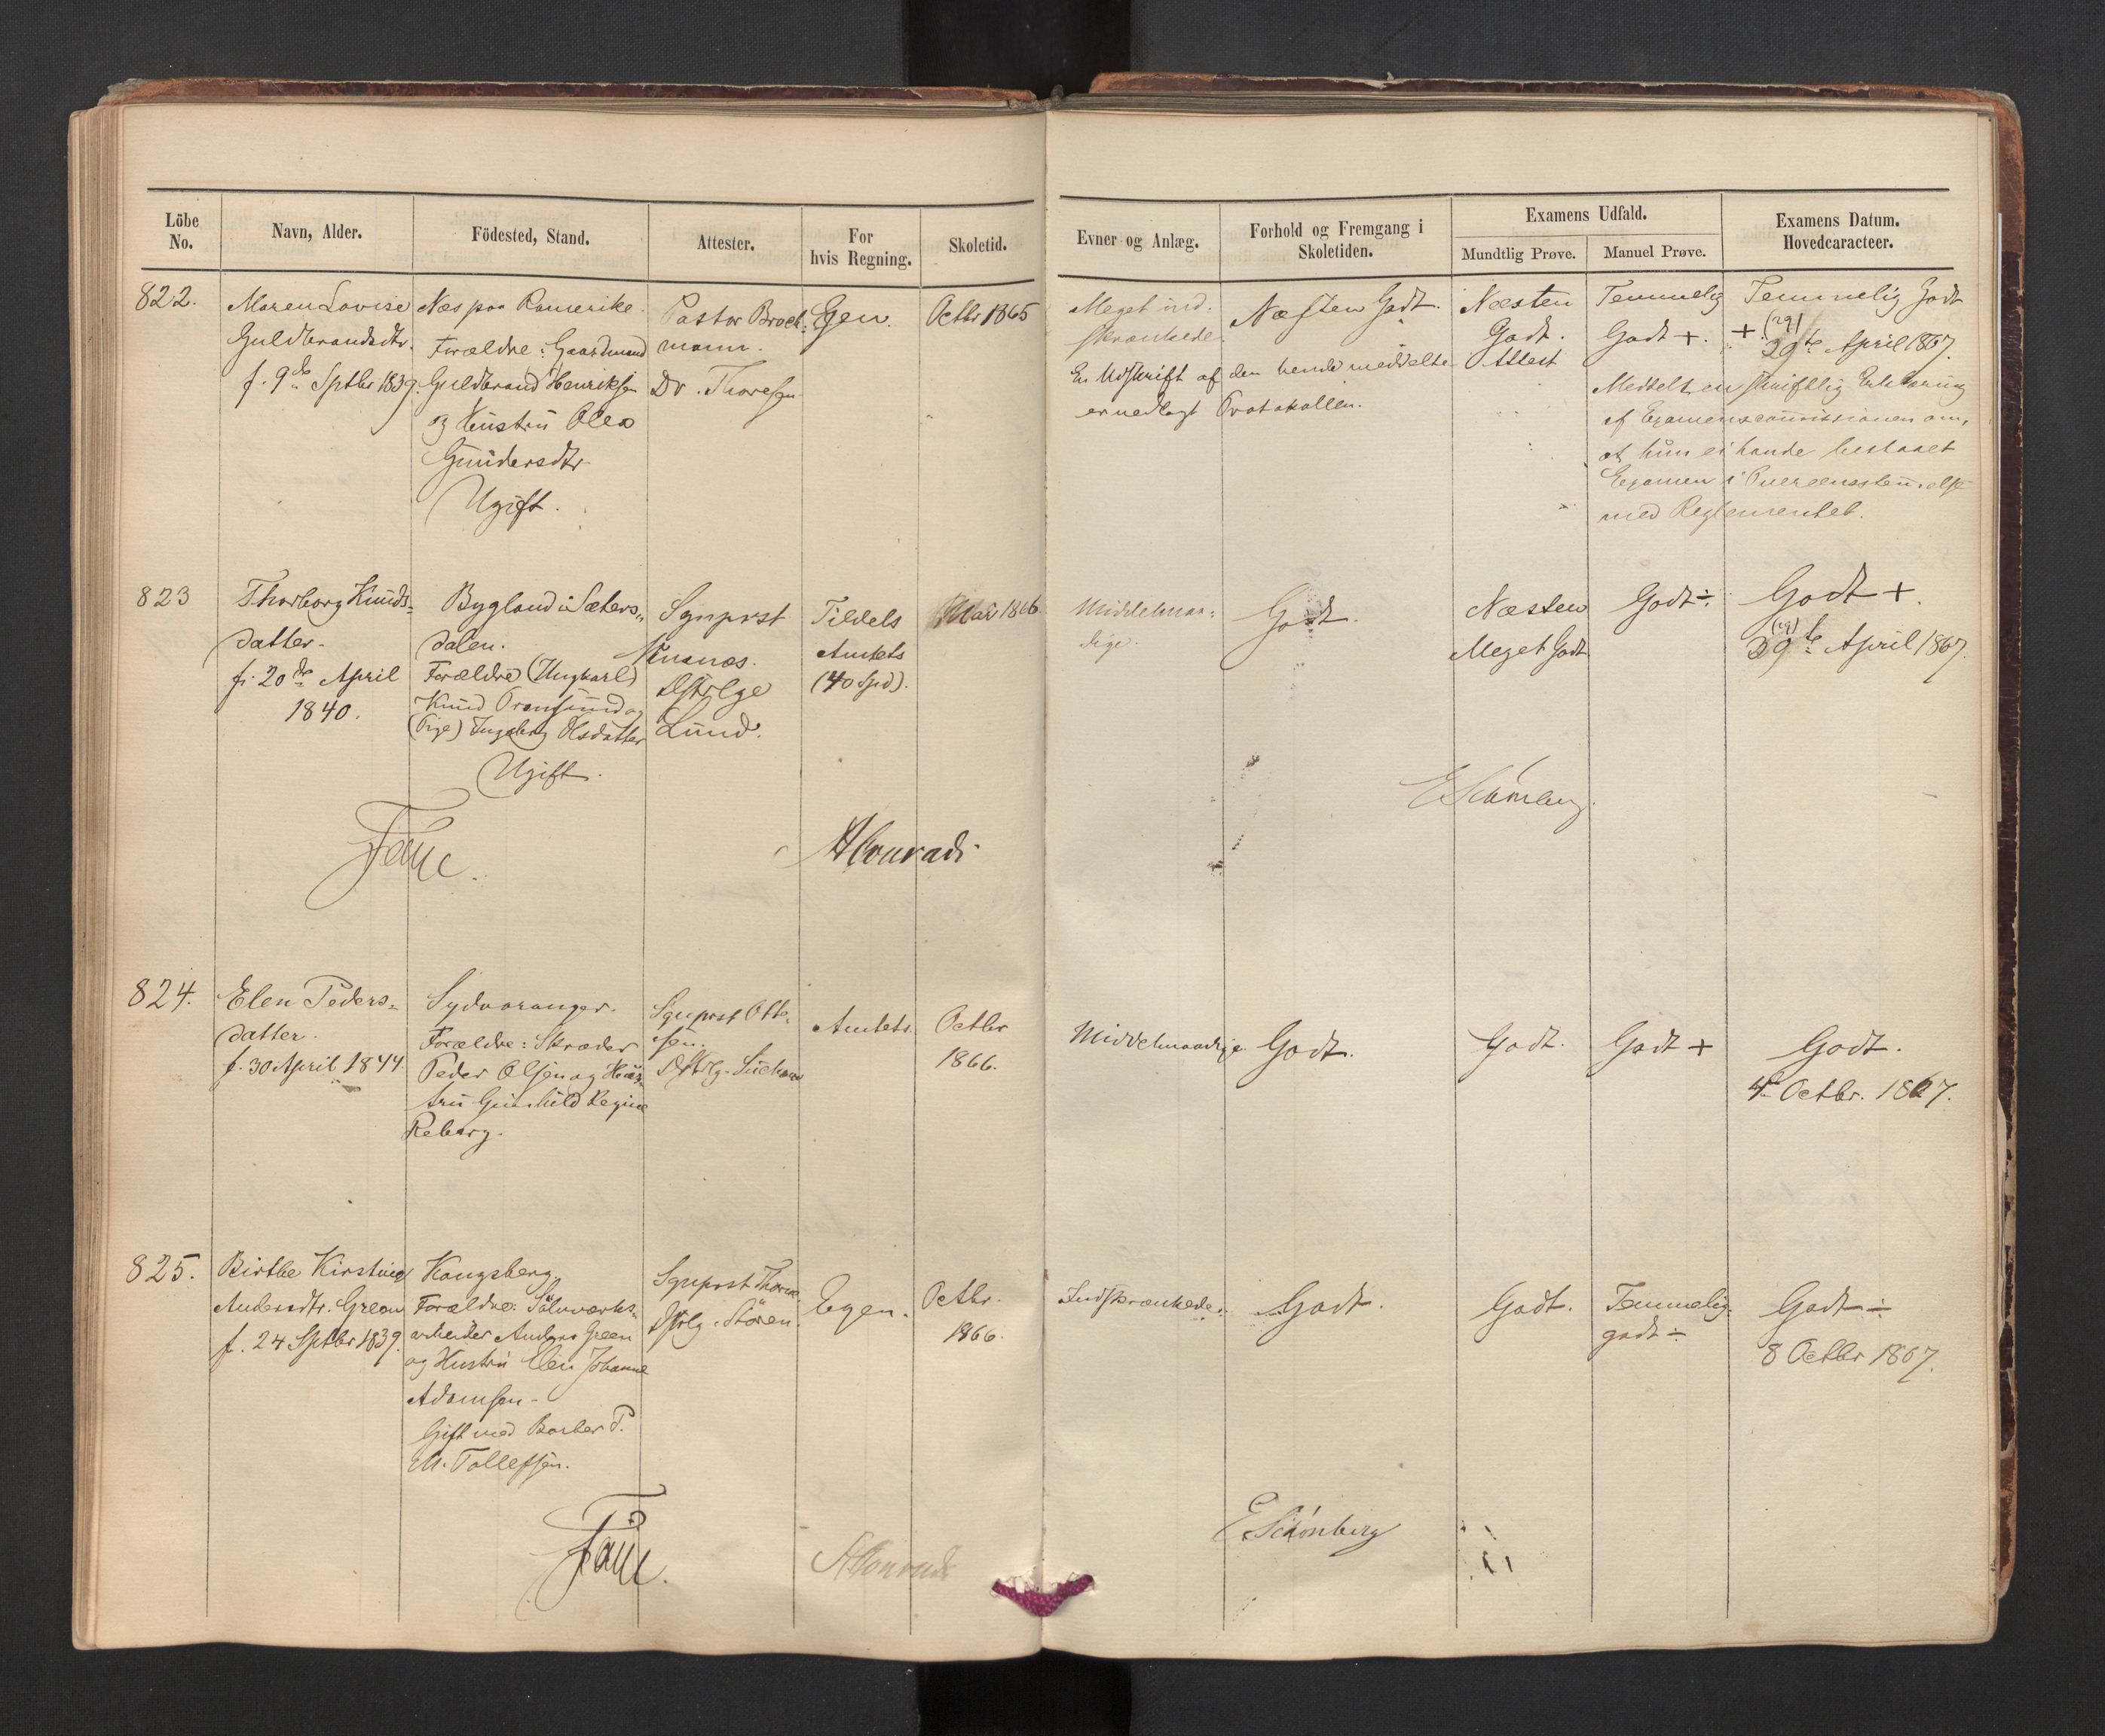 Löbe No.
Navn, Alder.
Födested, Stand.
Attester.
For hvis Regning.
Skoletid.
Evner og Anlæg.
Forhold og Fremgang i Skoletiden.
Examens Udfald.
Mundtlig Prøve.
Manuel Prøve.
Examens Datum.
Hovedcaracteer.
822.
Maren Lovise
Guldbrandsdtr.
f. 9de Sptbr 1839.
Næs paa Romerike.
Forældre: Gaardmand
Guldbrand Henriksen
og Hustru Olea
Gundersdtr
Ugift.
Pastor Brock-
mann.
Dr. Thoresen
Egen.
Octbr 1865
Meget ind-
skrænkede.
Næsten Godt.
Næsten
Godt.
Temmelig
Godt +.
Temmelig Godt
+ (29)
29te April 1867.
En Udskrift af den hende meddelte Attest
er nedlagt Protokollen.
Meddelt en skriftlig Erklæring
af Examenscommissionen om,
at hun ei havde bestaaet
Examen i Overensstemmelse
med Reglementet.
823
Thorborg Knuds-
datter.
f. 20de April
1840.
Bygland i Sæters-
dalen.
Forældre (Ungkarl)
Knud og
(Pige) Ingeborg Olsdatter
Ugift.
Sgnprst
Dstrlge
Lund.
Tildels
Amtets
(40 Spd).
Mai 1866
Middelmaa-
dige.
Godt.
Næsten
Meget Godt
Godt ÷.
Godt +.
(29)
29te April 1867.
E Schönberg.
Faye.
A Conradi
824.
Elen Peders-
datter.
f. 30 April 1844
Sydvaranger.
Forældre: Skræder
Peder Olsen og Hus-
tru Gunhild Regine
Reberg.
Sgnprst Otte-
sen.
Amtets
Octbr
1866.
Middelmaadige
Godt.
Godt.
Godt +
Godt.
4de Octbr. 1867.
825.
Birthe Kirstine
Andersdtr. Green
f. 24 Sptbr 1839.
Kongsberg,
Forældre: Sölvværks-
arbeider Anders Green
og Hustru Elen Johanne
Adamsen -
Gift med Barber P.
M. Tollefsen.
Sgnprst
Dstrlg. Stören
Egen.
Octbr.
1866.
Indskrænkede.
Godt.
Godt.
Temmelig
godt ÷
Godt ÷
8 Octbr 1867.
Faye.
A Conradi
E Schönberg